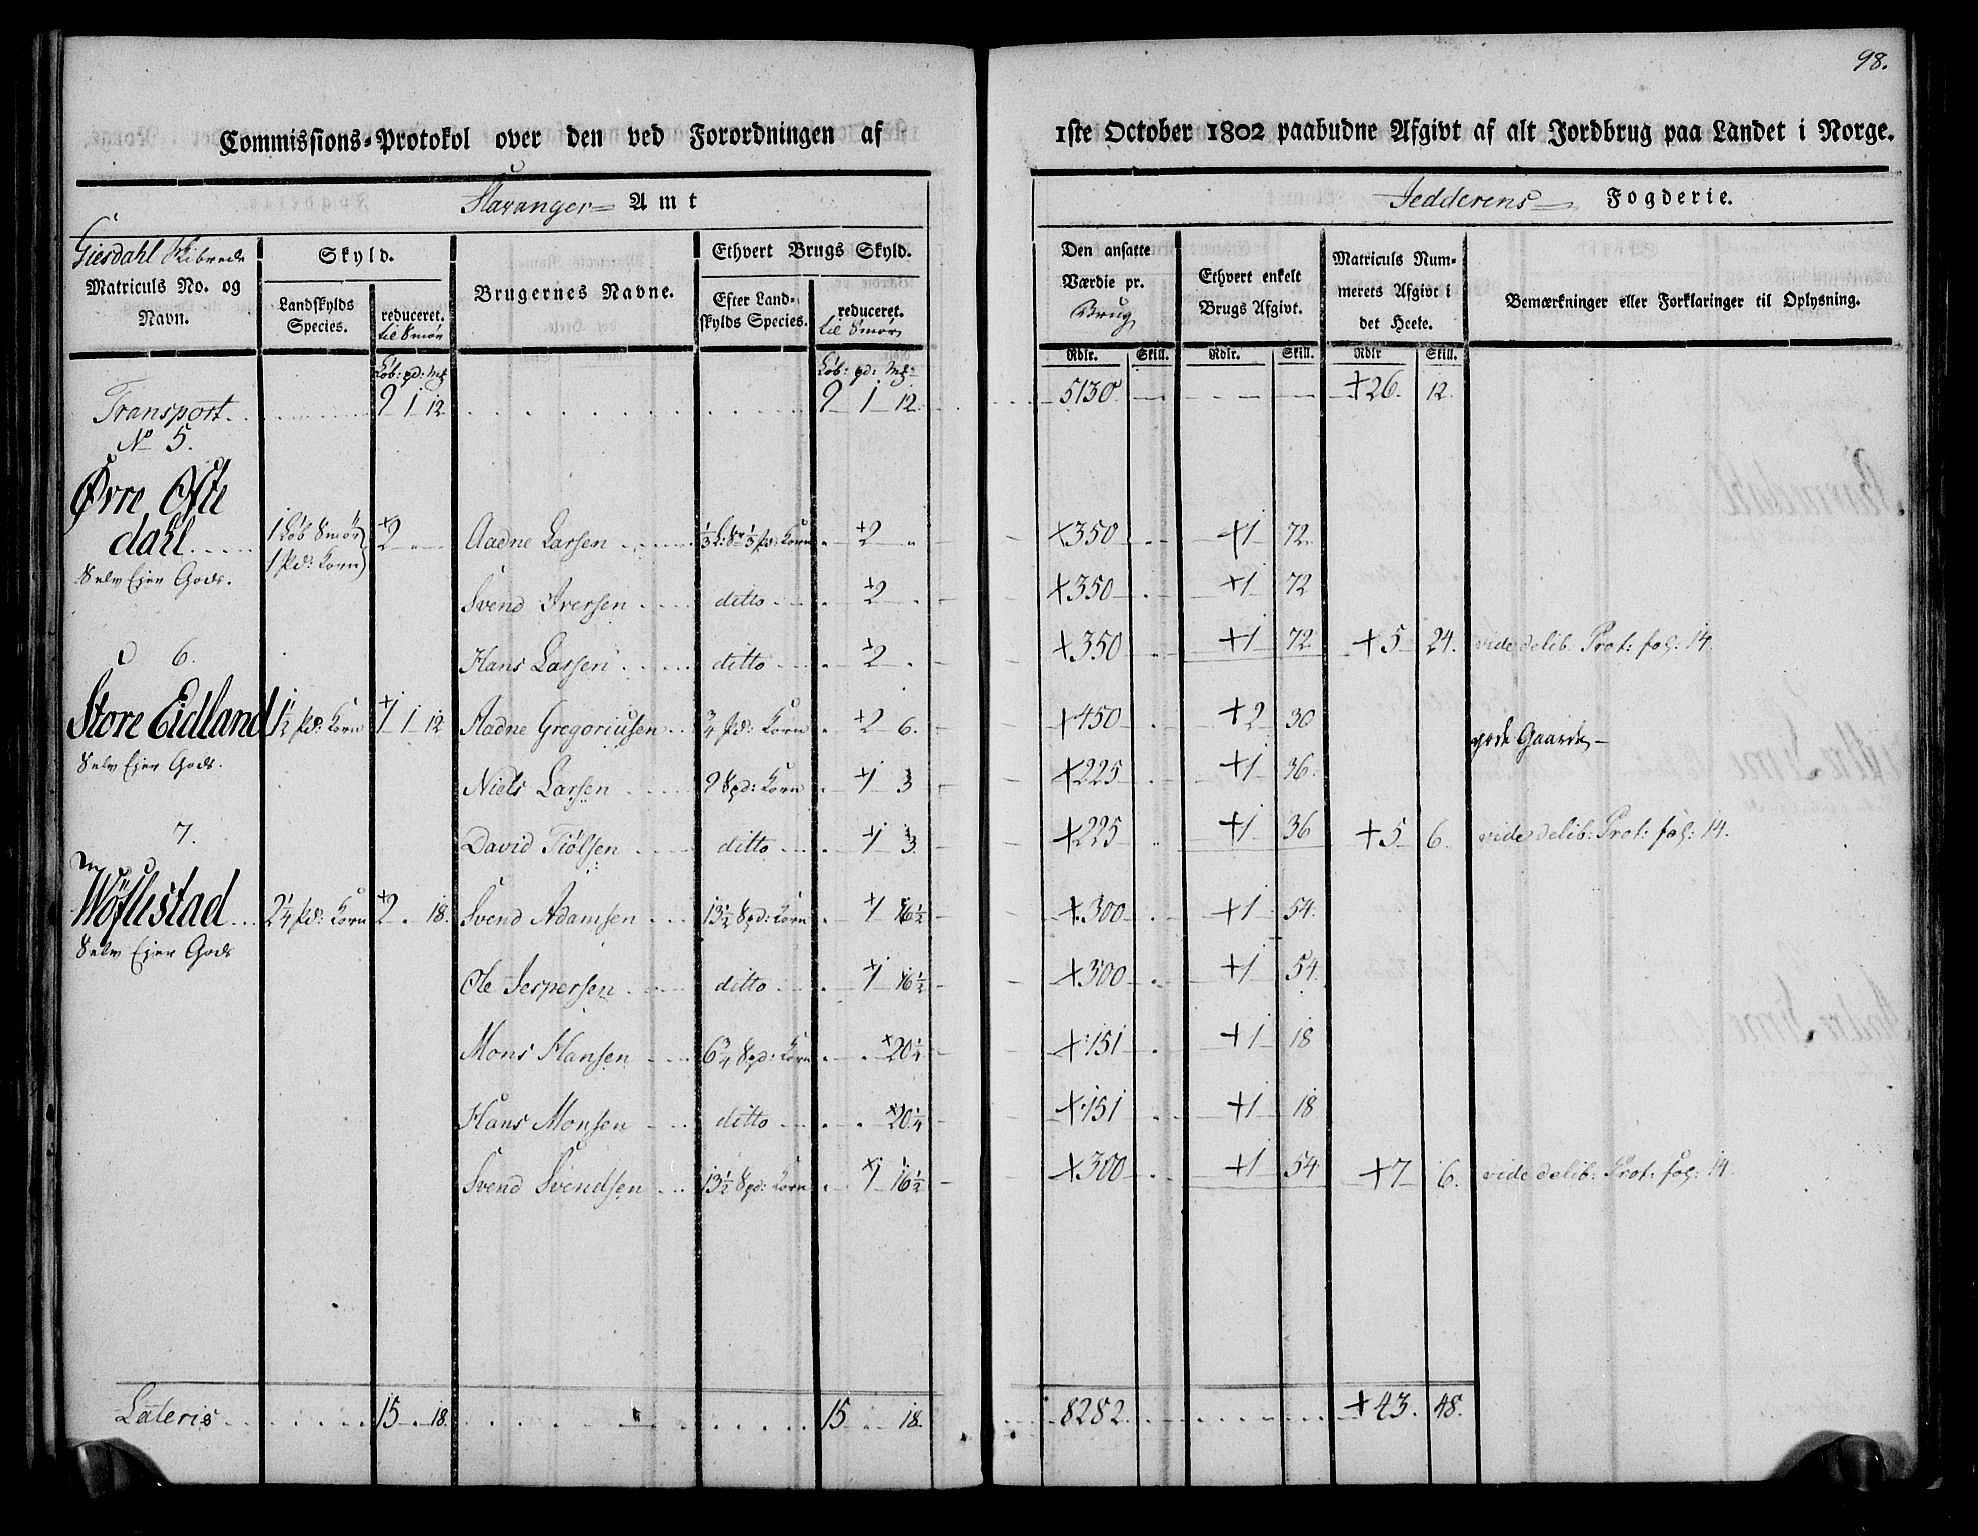 98.
Commissions-Protokol over den ved Forordningen af 1ste October 1802 paabudne Afgivt af alt Jordbrug paa Landet i Norge.
Stavanger Amt
Jedderens Fogderie.
Giesdahl Skibrede
Matriculs No. og Navn.
Skyld.
Landskylds Species.
reduceret.
til Smør
Brugernes Navne.
Ethvert Brugs Skyld.
Efter Landskylds Species.
reduceret.
til Smør
Den ansatte Værdie pr.
Brug
Ethvert enkelt Brugs Afgivt.
Matriculs Nummerets Afgivt i det Heele.
Bemærkninger eller Forklaringer til Oplysning.
Løb: pd: Mk Løb: pd: Mk: Rdlr. Skill. Rdlr. Skill. Rdlr Skill.
Transport 9 1 12 9 1 12 5130 +26 12
No 5.
Øvre Ofte
dahl 1 Løb Smør +2 Aadne Larsen 1/3 L: Sr 1/3 pd: Korn +2 +350 +1 72
1 pd: Korn
Selv Ejer Gods.
Svend Iversen ditto +2 +350 +1 72
6.
Hans Larsen ditto +2 +350 +1 72 +5 24. vide delib. Prot: fol: 14.
Store Eidland 1 1/2 pd: Korn +1 1 12 Aadne Gregoriusen 3/4 pd: Korn +2 6. +450 +2 30 gode Gaarde
Selv Ejer Gods.
Niels Larsen 9 Spd: Korn +1 3 +225 +1 36.
7.
David Tiølsen ditto +1 3 +225 +1 36 +5 6. vide delib: Prot: fol: 14.
Wøflestad 2 1/4 pd: Korn +2 18. Svend Adamsen 13 1/2 Spd: Korn +1 16 1/2 +300 +1 54.
Selv Ejer Gods
Ole Jespersen ditto +1 16 1/2 +300 +1 54.
Mons Hansen 6 3/4 Spd: Korn +20 1/4 +151 +1 18
Hans Monsen ditto +20 1/4 +151 +1 18
Svend Svendsen 13 1/2 Spd: Korn +1 16 1/2 +300 +1 54 +7 6. vide delib: Prot: fol: 14.
Lateris 15 18. 15 18. 8282 +43. 48.